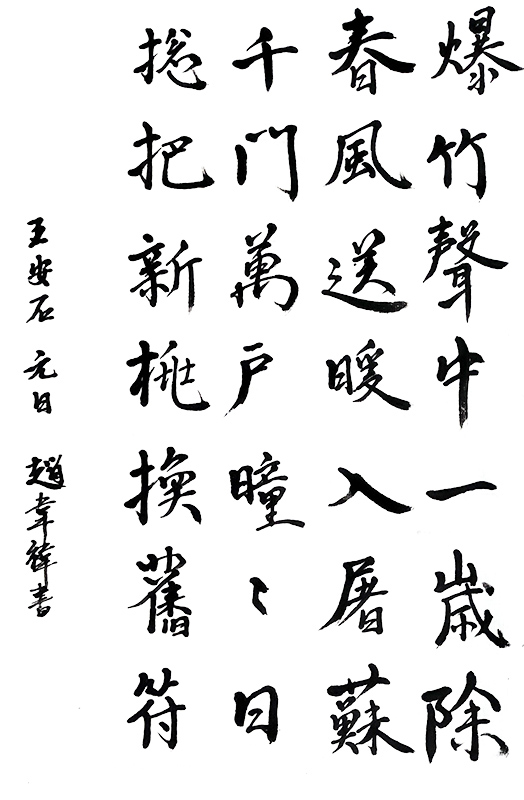 爆竹聲中一歲除
春風送暖入屠蘇
千門萬戶曈〻日
捴把新桃換舊符
王安石 元日 趙韋禕書